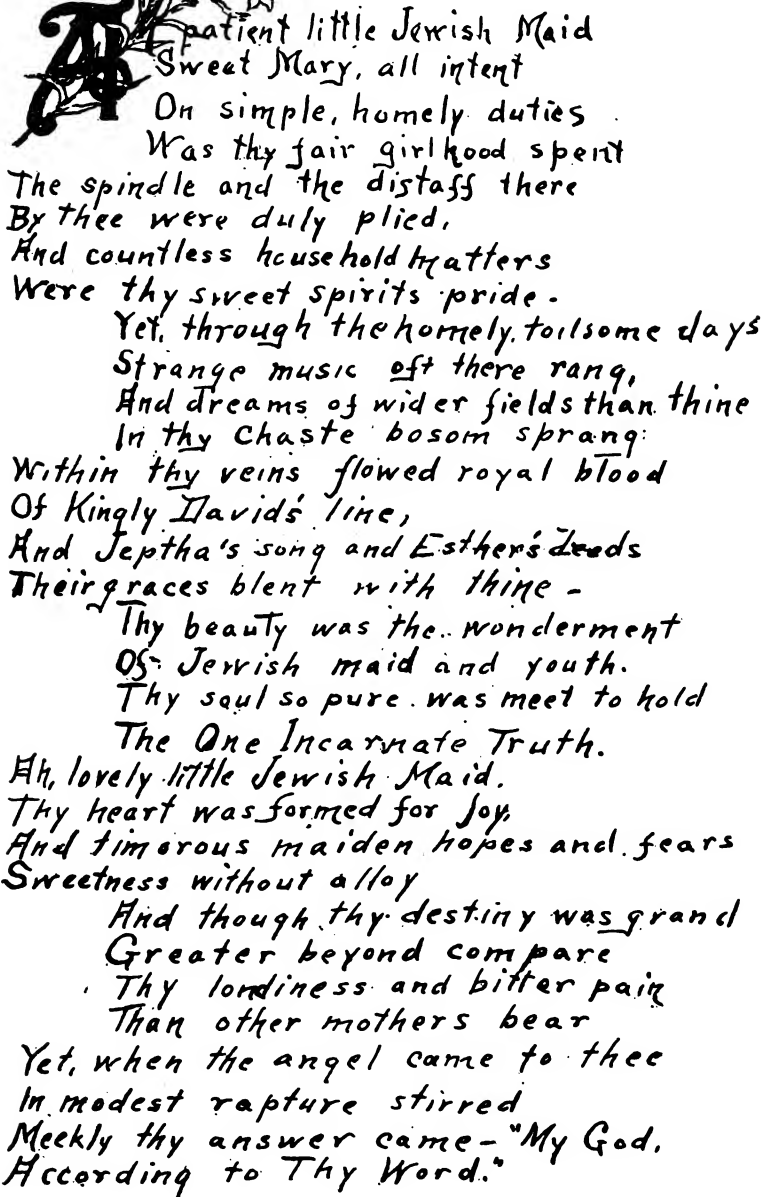 A patient little Jewish Maid
Sweet Mary, all intent
On simple, homely duties
Was thy fair girlhood spent
The spindle and the distaff there
By thee were duly plied,
And countless household matters
Were thy sweet spirits pride -
Yet, through the homely, toilsome days
Strange music oft there rang,
And dreams of wider fields than thine
In thy Chaste bosom sprang:
Within thy veins flowed royal blood
Of Kingly David's line,
And Jeptha's song and Esther's deeds
Their graces blent with thine -
Thy beauty was the wonderment
Of Jewish maid and youth.
Thy soul so pure was meet to hold
The One Incarnate Truth.
Ah, lovely little Jewish Maid.
Thy heart was formed for Joy,
And timorous maiden hopes and fears
Sweetness without alloy
And though thy destiny was grand
Greater beyond compare
Thy loneliness and bitter pain
Than other mothers bear
Yet, when the angel came to thee
In modest rapture stirred
Meekly thy answer came - "My God,
According to Thy Word."